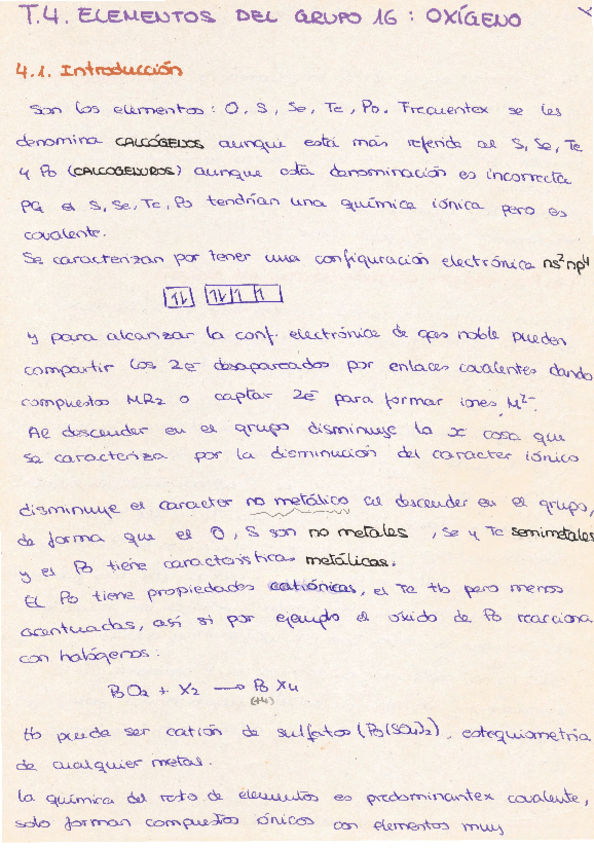 T.4. ELEMENTOS DEL GRUPO 16 : OXÍGENO
4.1. Introducción
Son los elementos : O, S, Se, Te, Po. Frecuentex se les
denomina CALCÓGENOS aunque está más referida al S, Se, Te
y Po (CALCOGENUROS) aunque esta denominación es incorrecta
pq el S, Se, Te, Po tendrían una química iónica pero es
covalente.
Se caracterizan por tener una configuración electrónica ns²np⁴
y para alcanzar la conf. electrónica de gas noble pueden
compartir los 2e⁻ desapareados por enlaces covalentes dando
compuestos MR₂ o captar 2e⁻ para formar iones M²⁻.
Al descender en el grupo disminuye la x cosa que
se caracteriza por la disminución del caracter iónico
disminuye el caracter no metálico al descender en el grupo,
de forma que el O, S son no metales, Se y Te semimetales
y el Po tiene características metálicas.
El Po tiene propiedades catiónicas, el Te tb pero menos
acentuadas, así si por ejemplo el óxido de Po reacciona
con halógenos :
PoO₂ + X₂ → Po X₄
(+4)
tb puede ser catión de sulfatos (Po(SO₄)₂), estequiometría
de cualquier metal.
La química del resto de elementos es predominantex covalente,
solo forman compuestos iónicos con elementos muy